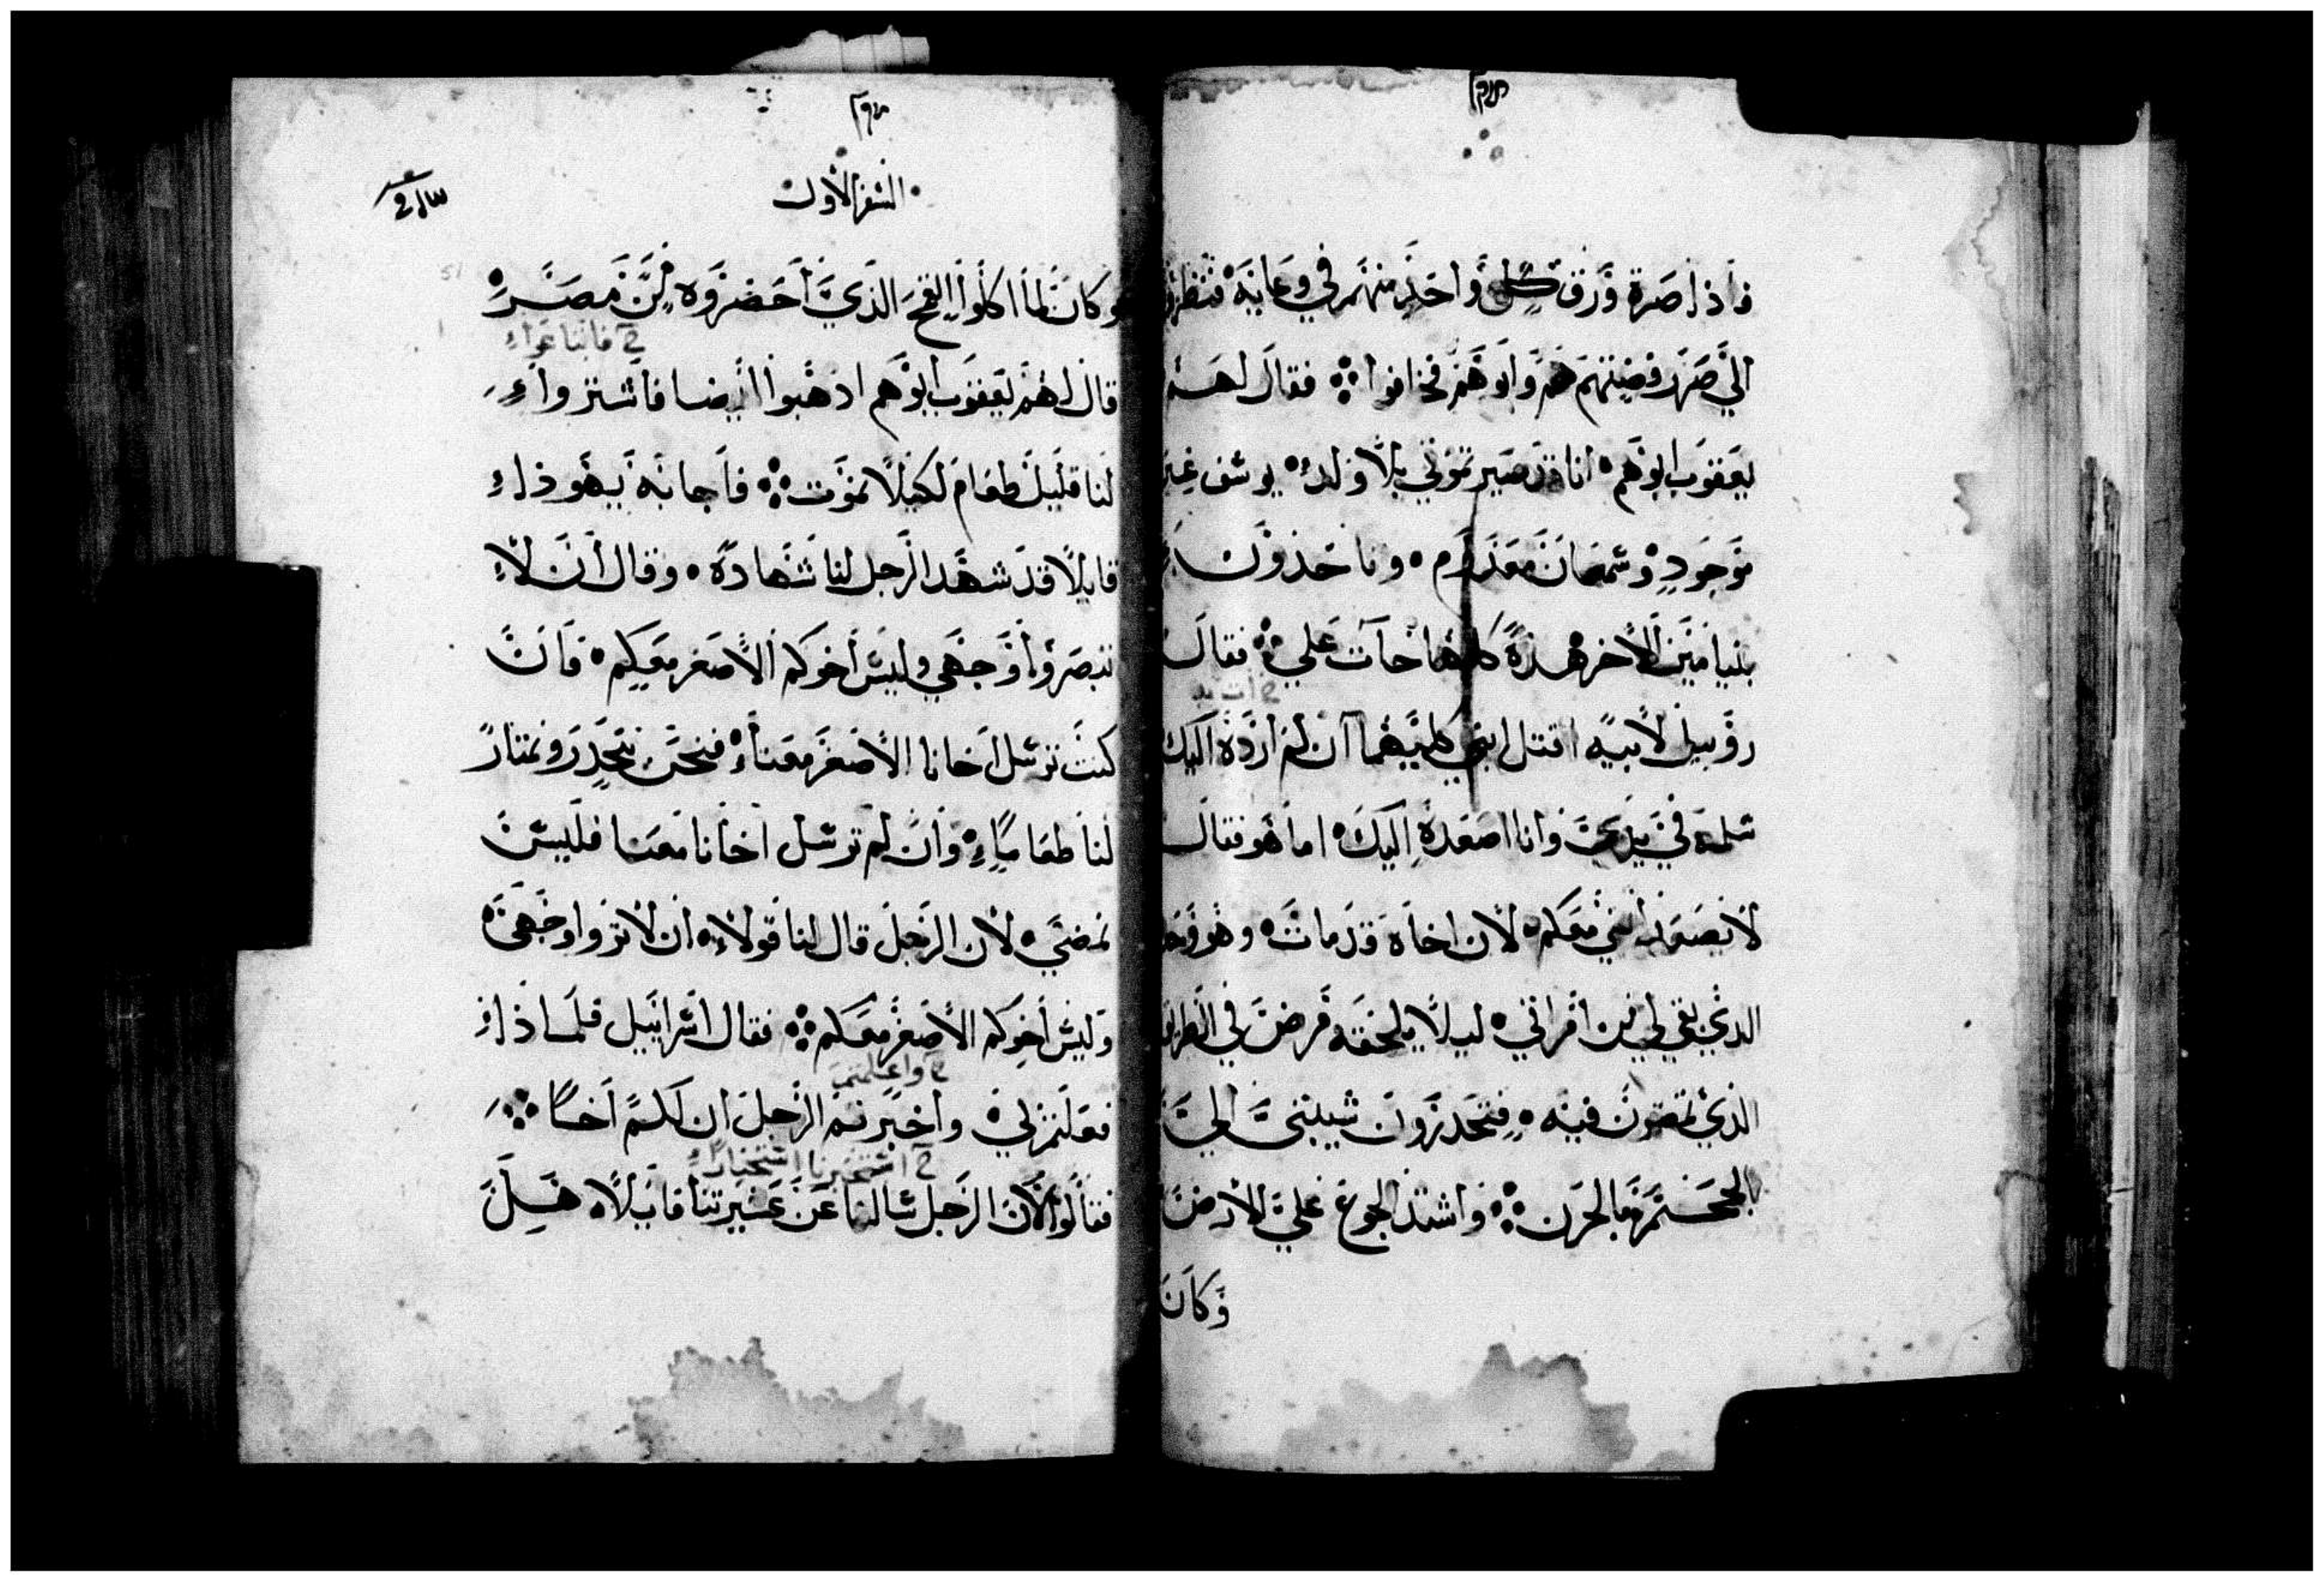 فاذا صرة ورق كل واحد منهم في وعايه فنظروا
الي صرر فضتهم هم وابوهم فخافوا ⁘ فقال لهم
يعقوب ابوهم انا قد صيرتموني بلا ولد يوسف غير
موجود وشمعان معدوم وتاخذون
بنيامين الاخر هذه كلها جآت علي ⁘ فقال
ح ات به
روبيل لابيه اقتل ابني كليهما ان لم ارده اليك
سلمه في يدي وانا اصعده اليك اما هو فقال
لا يصعد ابني معكم لان اخاه قد مات وهو وحده
الذي بقي لي من افراني ليلا يلحقه مرض في الطريق
الذي تمضون فيه فتحدرون شيبتي الي
الجحيم بالحزن ⁘ واشتد الجوع علي الارض
وكان
السفر الاول
وكان لما اكلوا القمح الذي احضروه من مصر
ح فابتاعوا
قال لهم يعقوب ابوهم اذهبوا ايضا فاشتروا
لنا قليل طعام لكيلا نموت ⁘ فاجابه يهوذا
قايلا قد شهد الرجل لنا شهادة وقال ان لا
تبصروا وجهي وليس اخوكم الاصغر معكم فان
كنت ترسل اخانا الاصغر معنا فنحن ننحدر ونمتار
لنا طعاما وان لم ترسل اخانا معنا فليس
نمضي لان الرجل قال لنا قولا ان لا تروا وجهي
وليس اخوكم الاصغر معكم ⁘ فقال اسراييل فلماذا
ح واعلمتم
فعلتم لي واخبرتم الرجل ان لكم اخا ⁘
ح استخبرنا استخبارا
فقالوا لان الرجل سالنا عن عشيرتنا قايلا هل